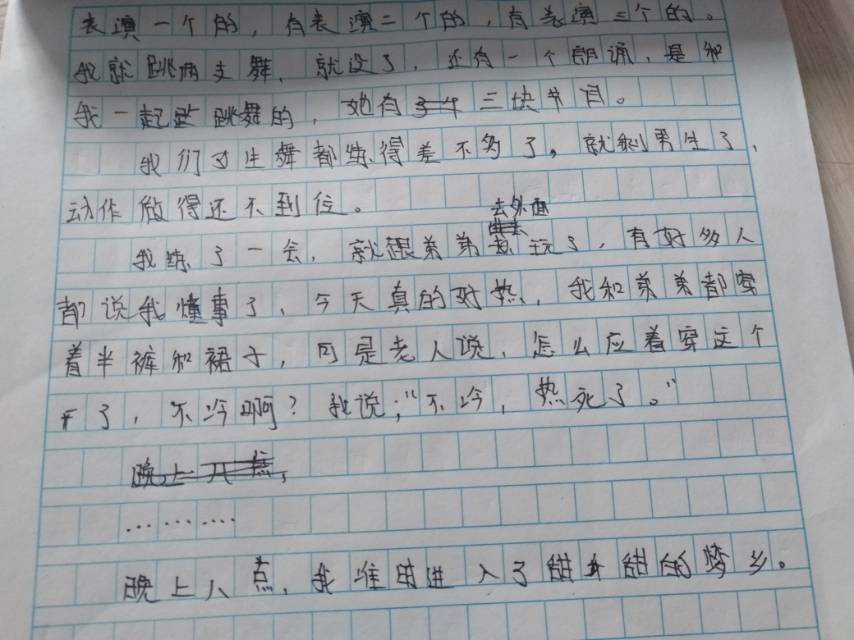 表演一个的，有表演二个的，有表演三个的。
我就跳两支舞，就没了，还有一个朗诵，是和
我一起跳舞的，她有三块节目。
我们女生舞都练得差不多了。就剩男生了，
动作做得还不到位。
去外面
我练了一会，就跟弟弟玩了，有好多人
都说我懂事了，今天真的好热，我和弟弟都穿
着半裤和裙子，可是老人说，怎么应着穿这个
了，不冷啊？我说；“不冷，热死了。”
晚上八点，
…………
晚上八点，我准时进入了甜甜的梦乡。